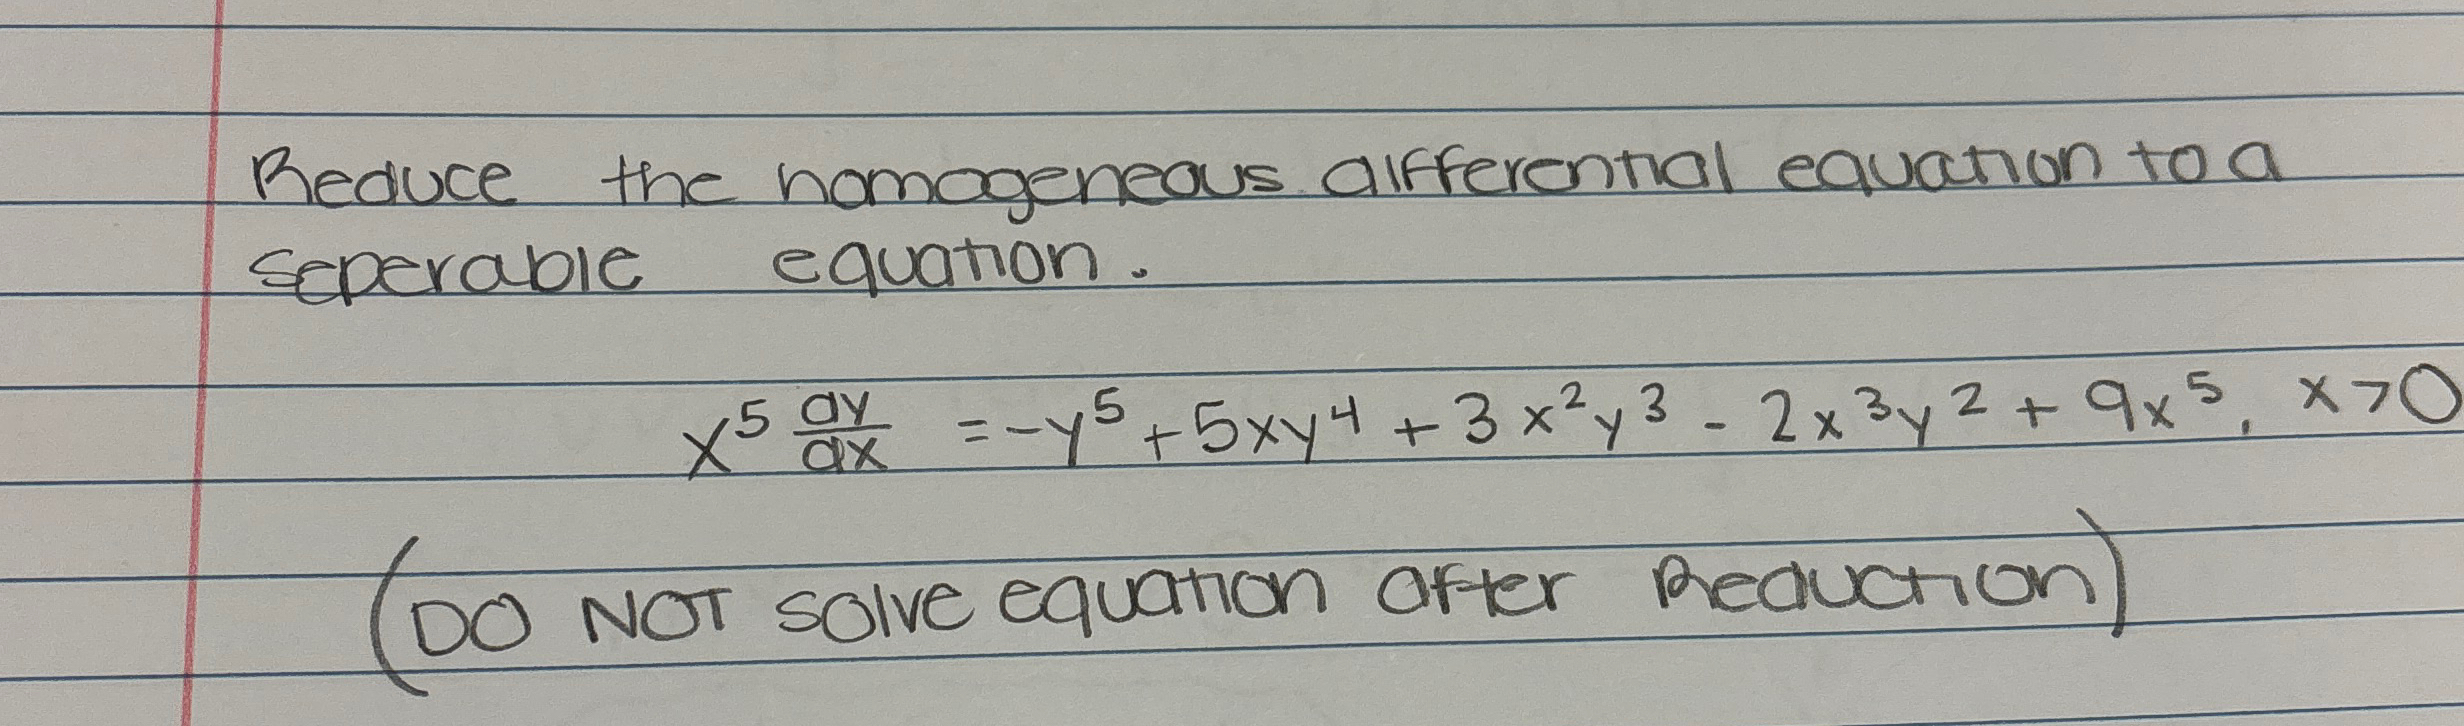 Reduce the homogeneous differential equation to a
seperable equation.
x⁵ dy/dx = -y⁵ + 5xy⁴ + 3x²y³ - 2x³y² + 9x⁵, x>0
(DO NOT solve equation after Reduction)